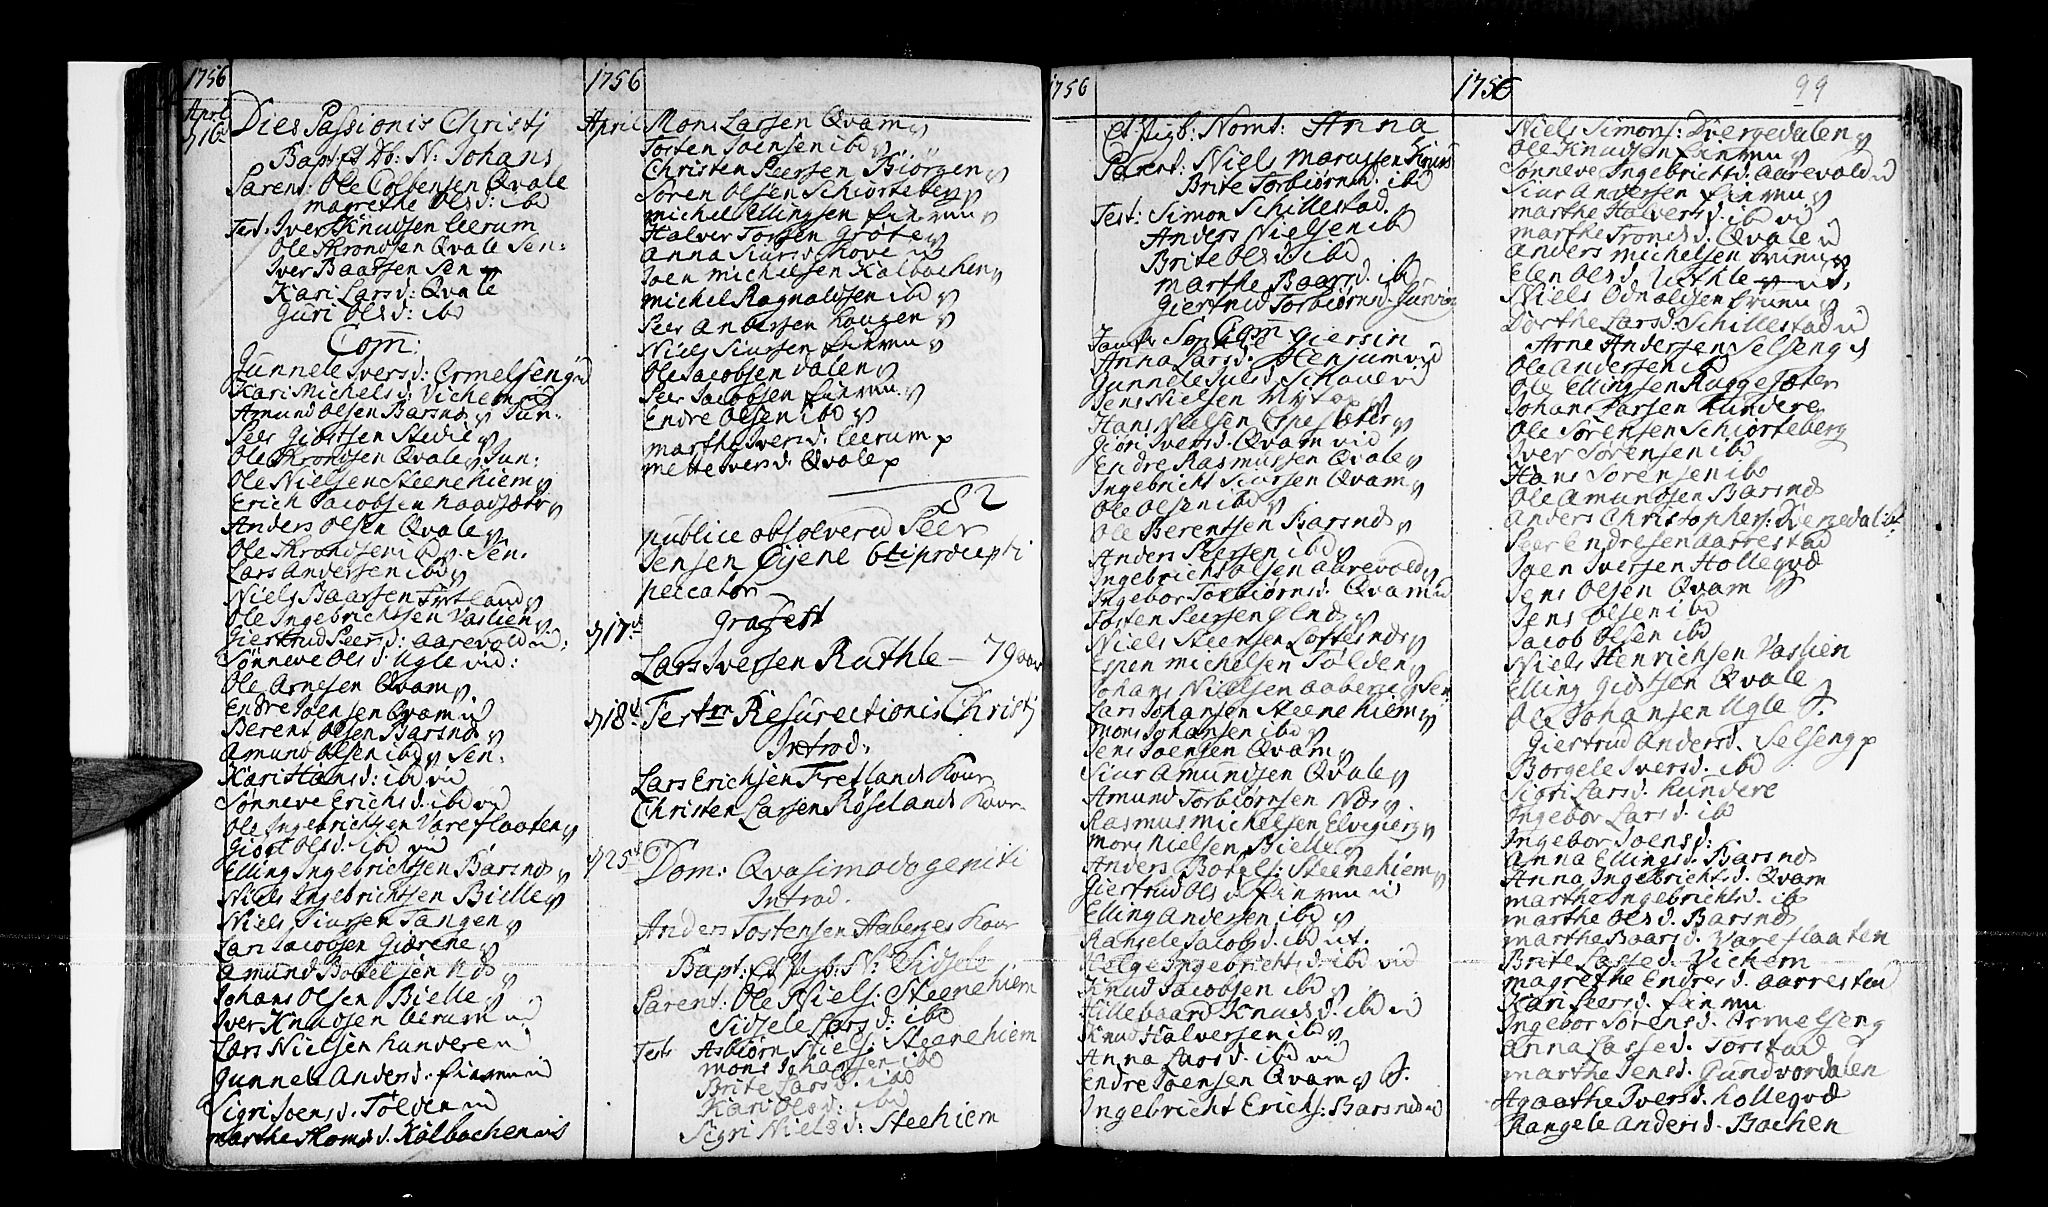 1756
Apr:
d 16d
Dies Passionis Christj
Bapt: Et Db: N: Johans
Parent: Ole Colbensen Qvale
magrethe Ols d: ibd
Test: Iver Knudsen Leerum
Ole Throndsen Qvale Sen:
Iver Baarsen Sen
Kari Lars d: Qvale
Guri Ols d: ibd
Com:
Gunnele Ivers d: Ormelseng
Kari Michels d: Vichem
Amund Olsen Barsnes Jun:
Peer Giøstsen Stedie
Ole Throndsen Qvale Jun:
Ole Nielsen Steenehiem
Erich Jacobsen
Anders Olsen Qvale
Ole Throndsen ibd Sen:
Lars Andersen ibd
Niels Baarsen
Ole Ingebrichtsen Vaslien
Giertrud Peers d: Aarevold
Sønneve Ols d: Ugle vid:
Ole Arnesen Qvam
Endre Joensen Qvam
Berent Olsen Barsnes
Amund Olsen ibd Sen:
Kari Hans d: ibd vid
Sønneve Erichs d: ibd vid
Ole Ingebrichtsen Vareflaaten
Giøri Ols d: ibd vid
Elling Ingebrichtsen Barsnes
Niels Ingebrichtsen Bielle
Niels Siursen Tangen
Lars Jacobsen Giærene
Amund Botelsen
Johans Olsen Bielle
Iver Knudsen Leerum
Lars Nielsen Hundere
Gunnele Anders d:
Sigri Joens d: Tølden
marthe Thoms d: Kalbachen
1756
April
Mons Larsen Qvam
Tosten Joensen ibd
Christen Peersen Biørgen
Søren Olsen Schiorteberg
michel Ellingsen
Halver Torsen Grøte
Anna Siurs d: hove
Joen michelsen Kalbachen
michel Ragnaldsen ibd
Peer Andersen Hougen
Niels Siursen
Ole Jacobsen dalen
Peer Jacobsen
Endre Olsen ibd
marthe Ivers d: Leerum p
mette Ivers d: Qvale p
82
publice absolvered Peer
Jensen Øyene 6ti præcepti
peccator
d 17d
Grafest
Lars Iversen Ruthle – 79 aar
d 18d
Fest m Resurectionis Christj
Introd:
Lars Erichsen Fretland Kour
Christen Larsen Røseland Kour
d 25d
Dom: Qvasimodogeniti
Introd.
Anders Tostensen Aaberges Kour
Bapt: Et Vigb: N: Sidsele
Parent: Ole Niels: Steenehiem
Sidsele Lars d: ibd
Test: Asbiørn Niels: Steenehiem
mons Johansen ibd
Brite Lars d. ibd
Kari Ols d: ibd
Sigri Niels d: Steehiem
1756
Et Vigb: Nomt: Anna
Parent: Niels Marussen
Brite Torbiørns d: ibd
Test: Simon Schillestad
Anders Nielsen ibd
Brite Ols d: ibd
marthe Baars d: ibd
Giertrud Torbiørns d
Com
Anna Lars d: Henjum vid
Gunnele Juls d: Schaue vid
Jens Nielsen
Hans Nielsen Espesæter
Giøri Ivers d: Qvam vid
Endre Rasmussen Qvale
Ingebricht Siursen Qvam
Ole Olsen ibd
Ole Berentsen Barsnes
Anders Peersen ibd
Ingebricht Olsen Aarevold
Ingebor Torbiørns d: Qvam
Tosten Peersen Ølnes
Niels Steensen Loftesnes
Espen michelsen Tølden
Johans Nielsen Aaberge Sen
Lars Johansen Steenehiem
mons Johansen ibd
Jens Joensen Qvam
Siur Amundsen Qvale
Amund Torbiørnsen Næs
Rasmus michelsen Elvegierg
mons Nielsen Bielle
Anders Botels: Steenehiem
Giertrud Ols d
Elling Andersen ibd
Rangele Jacobs d. ibd
Helge Ingebrichts d: ibd vid
Knud Jacobsen ibd
Hillebaard Knuds d. ibd
Knud Halversen ibd
Anna Lars d. ibd vid
Endre Joensen Qvam
Ingebricht Erichs: Barsnes
1756
99
Niels Simons: Dvergedalen
Ole Knudsen
Sønneve Ingebrichts d: Aarevold
Siur Andersen
marthe Halvers d. ibd vid
marthe Tronds d: Qvale
Anders michelsen
Elen Ols d. Ruthle
Niels Odnoldsen
Dorthe Lars d: Schillestad
Arne Andersen Selseng
Ole Andersen ibd
Ole Ellingsen Ruggesæter
Johans Larsen Hundere
Ole Sørensen Schiorteberg
Iver Sørensen ibd
Hans Sørensen ibd
Ole Amundsen Barsnes
Anders Christophers: Dvergedalen
Peer Endresen Aarrestad
Joen Iversen Holleqve
Jens Olsen Qvam
Jens Olsen ibd
Jacob Olsen ibd
Niels Henrichsen Vaslien
Elling Giøstsen Qvale
Ole Johansen Ugle
Giertrud Anders d. Selseng p
Borgele Ivers d. ibd
Sigri Lars d. Hundere
Ingebor Lars d. ibd
Ingebor Joens d:
Anna Ellings d. Barsnes
Anna Ingebrichts d. Qvam
marthe Ingebrichts d. ib
marthe Ols d. Barsnes
marthe Baars d. Vareflaaten
Brite Lasse d. Vichem
magrethe Endres d. Aarrestad
Kari Peers d.
Ingebor Sørens d. Ormelseng
Anna Lasse d. Torstad
marthe Jens d. Gundvordalen
Agaathe Ivers d. Holleqve
Rangele Anders d. Bachen